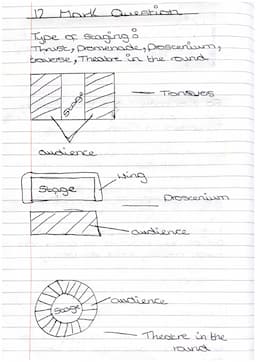 12 Mark Question
Type of staging:
Thrust, Promenade, Proscenium,
traverse, Theatre in the round
Stage
audience
Stage
wing
Proscenium
audience
Stage
audience
Theatre in the
round